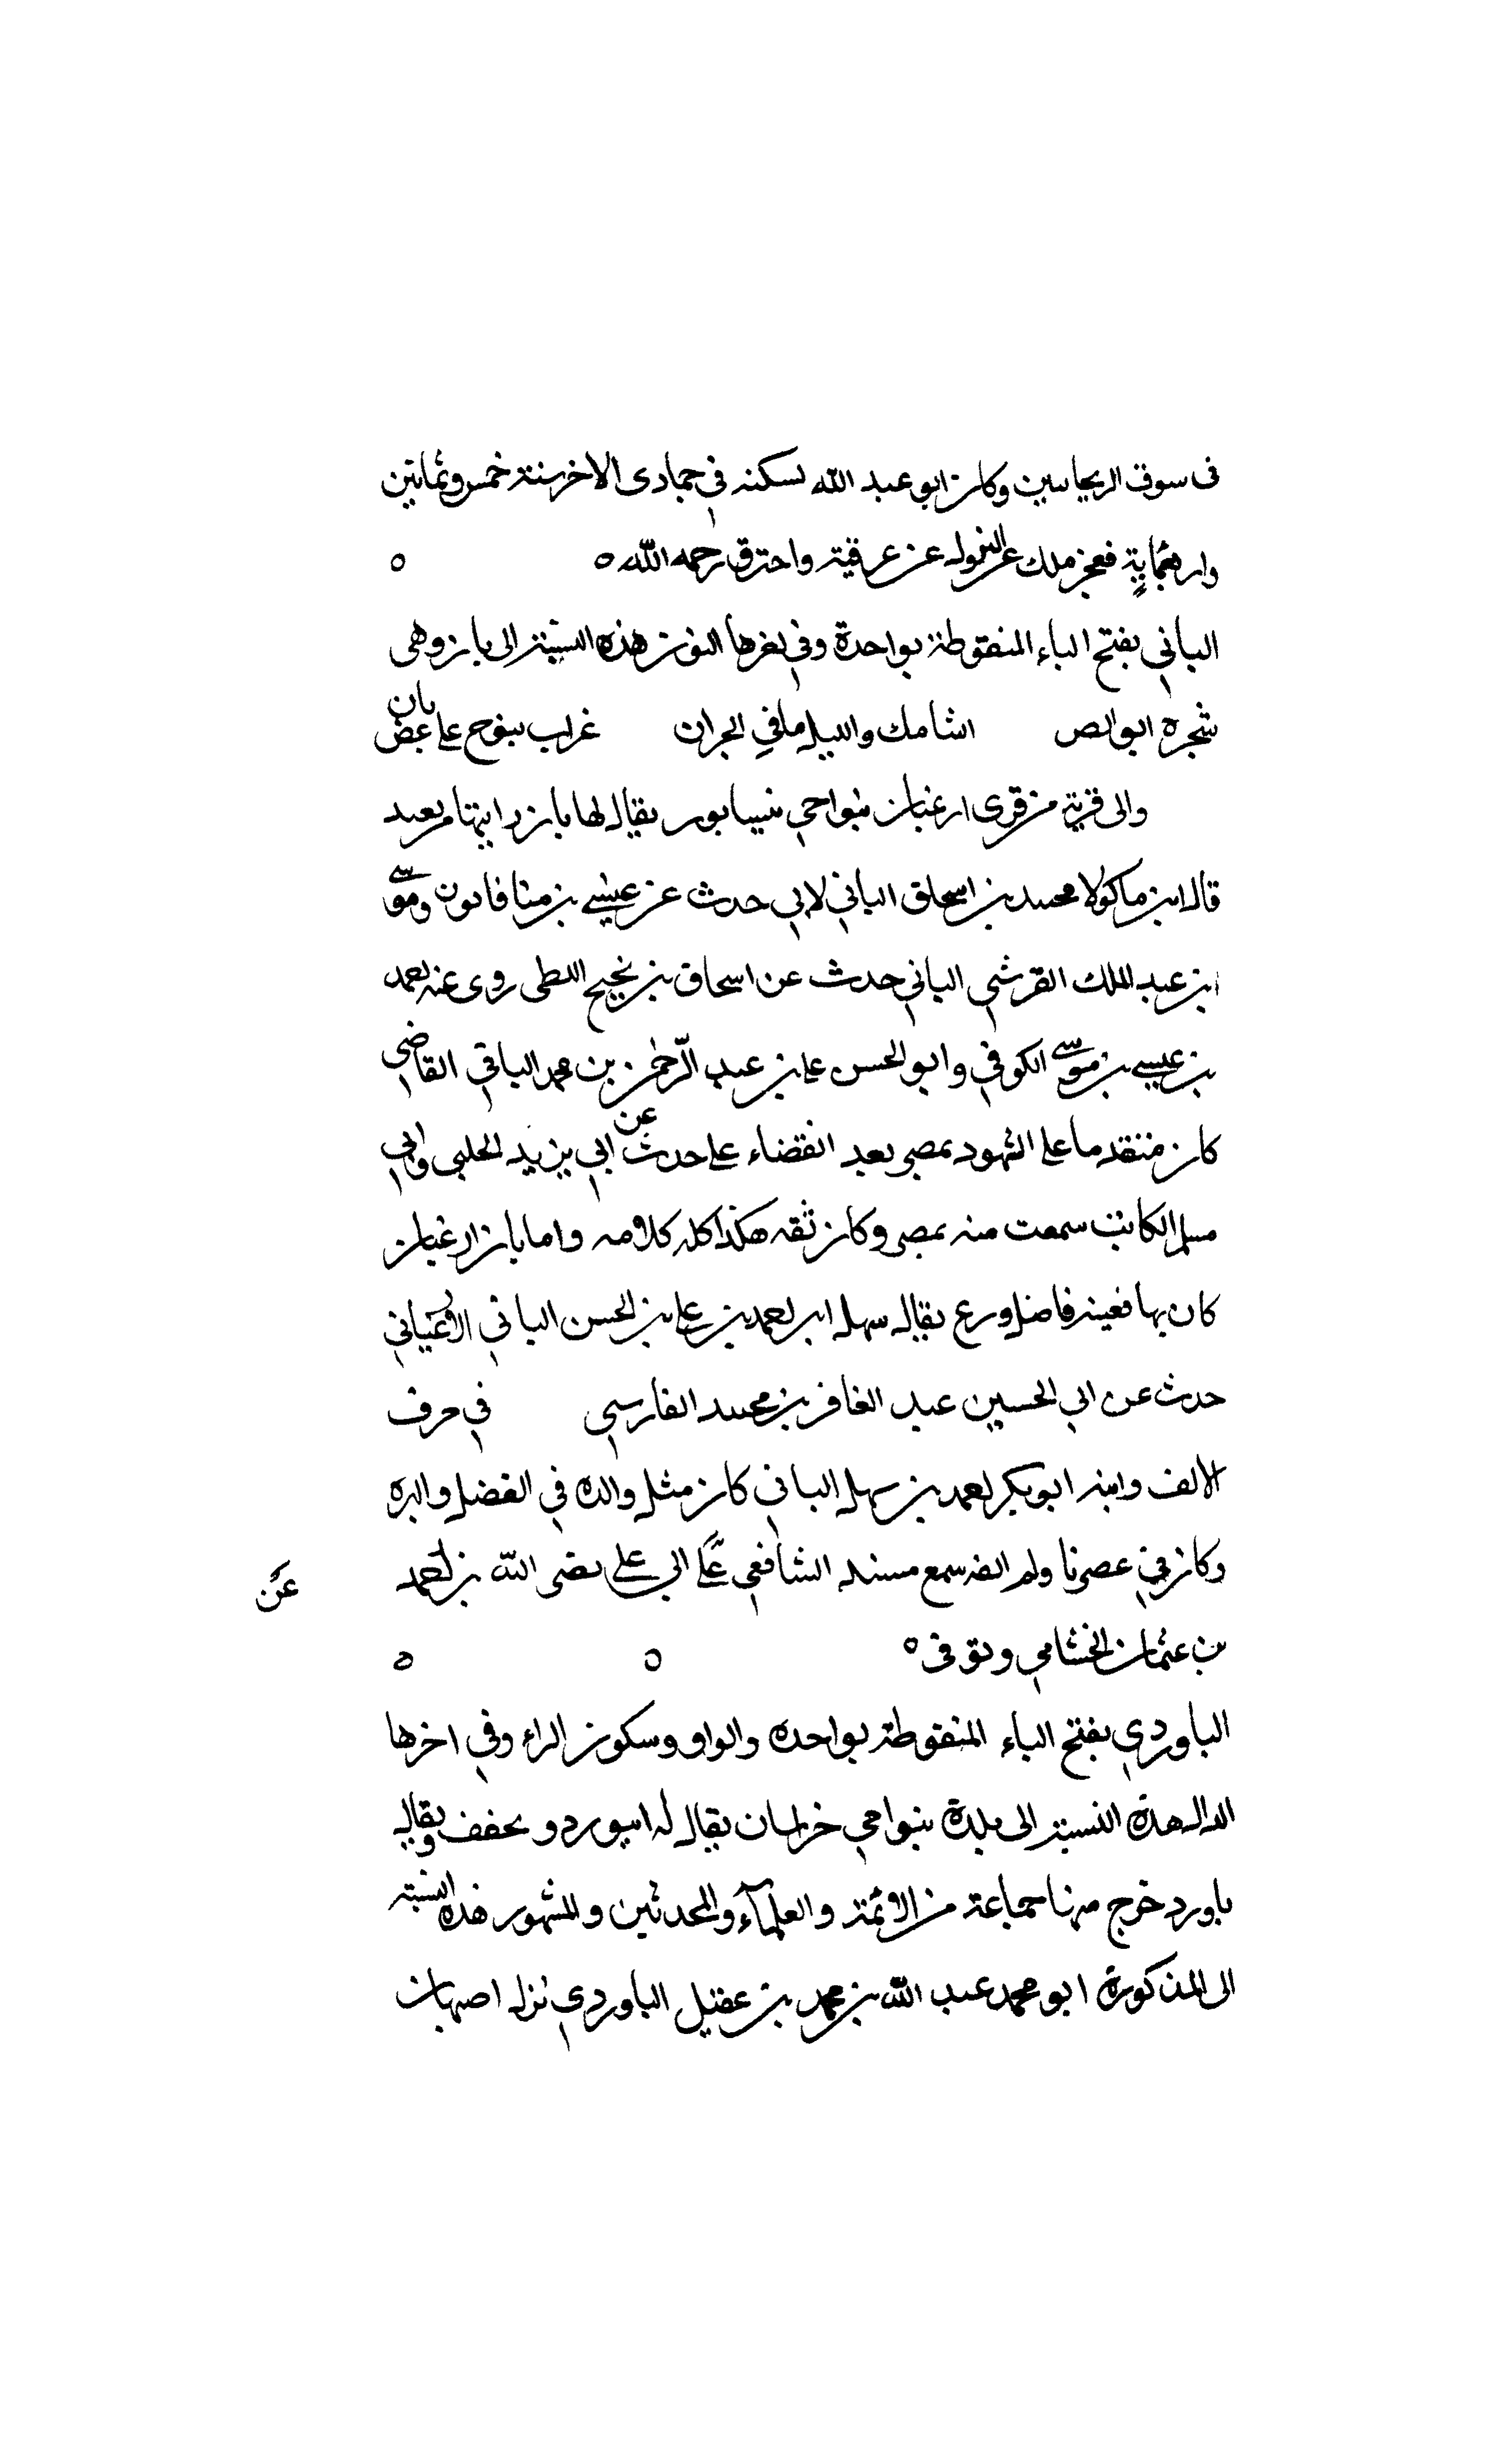 فى سوق الريحانيين وكان ابو عبد الله يسكنه في جمادى الاخر سنة خمس وثمانين
واربعمائة فعجز ملك عن النزول عن غرفته واحترق رحمه الله ه ه
الباني بفتح الباء المنقوطة بواحدة وفي اخرها النون هذه النسبة الى بان وهى
شجرة ابو الص انشا مك والليل ملقي الجران غراب ينوح على غصن بان
والى قرية من قرى ارغيان بنواحي نيسابور يقال لها بان رايتها من بعيد
قال ابن ماكولا محمد بن اسحاق الباني لابي حدث عن عيسى بن مينا قالون وموسى
ابن عبد الملك القرشي الباني حدث عن اسحاق بن نجيح الملطى روى عنه احمد
بن عيسى بن موسى الكوفي وابو الحسن على بن عبد الرحمن بن محمد الباني القاضي
كان متقدما على الشهود بمصر بعد القضاء على حدث عن ابي يزيد الحلبي وابي
مسلم الكاتب سمعت منه بمصر وكان ثقه هكذا كله كلامه واما بان ارغيان
كان بها فقيه فاضل ورع يقال سهل ابن احمد بن على بن الحسن الباني الارغياني
حدث عن ابي الحسين عبد الغافر بن محمد الفارسي في حرف
الالف وابنه ابو بكر احمد بن سهل الباني كان مثل والده في الفضل والبره
وكان في عصرنا ولم القه سمع مسند الشافعي على ابي على نصر الله بن احمد
عن
بن عثمان الخشنامي وتوفى ه ه ه
الباوردي بفتح الباء المنقوطة بواحده والواو وسكون الراء وفي اخرها
الدال هذه النسبة الى بلدة بنواحي خراسان يقال له ابيورد ويخفف ويقال
باورد خرج منها جماعة من الائمة والعلمآء والمحدثين والمشهور هذه النسبة
الى المذكورة ابو محمد عبد الله بن محمد بن عقيل الباوردي نزل اصبهان